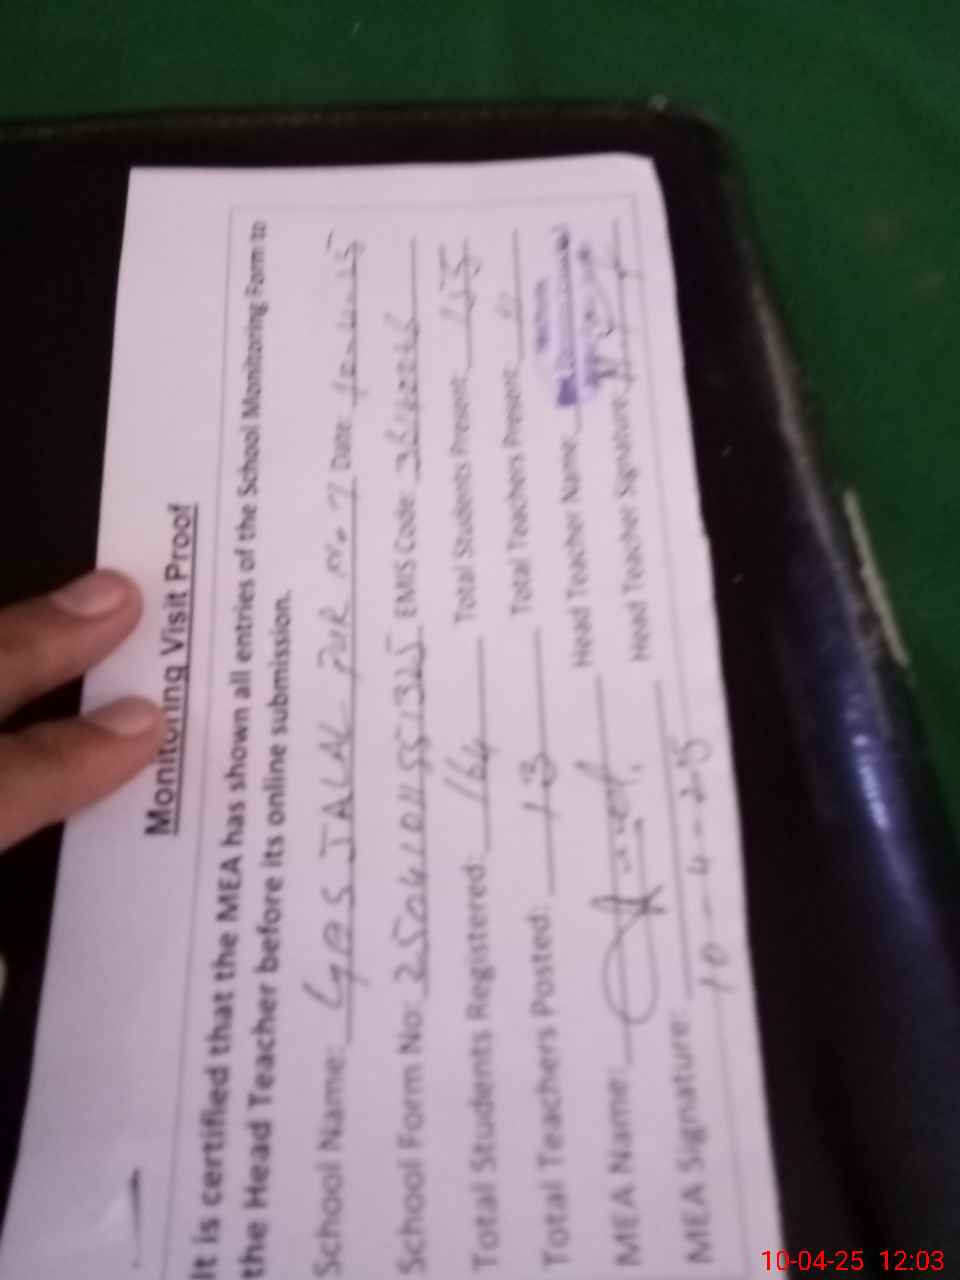 Monitoring Visit Proof
It is certified that the MEA has shown all entries of the School Monitoring Form to
the Head Teacher before its online submission.
School Name: GGPS JALAL PUR No 7 Date: 10-4-25
School Form No: 2504104551325 EMIS Code:
Total Students Registered: 164 Total Students Present: 155
Total Teachers Posted: 13 Total Teachers Present: 11
MEA Name: Head Teacher Name:
MEA Signature: Head Teacher Signature:
10-4-25
10-04-25 12:03